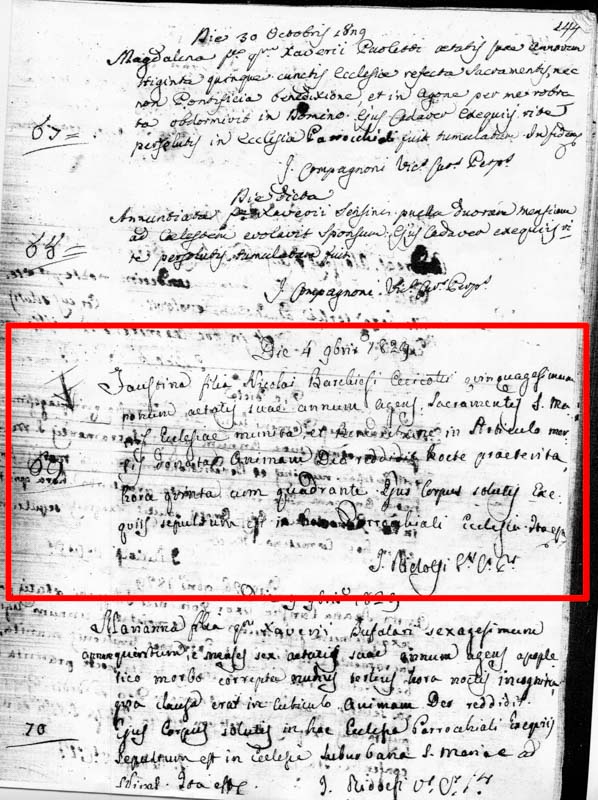 144
Die 30 Octobris 1829
Magdalena Xaverii Paoletti aetatis suae annorum
triginta quinque cunctis Ecclesiae refecta Sacramentis, nec
non Pontificia benedixione, et in Agone per me robora
ta obdormivit in Domino. Ejus Cadaver Exequiis rite
67 persolutis in Ecclesia Parrochiali fuit tumulatum. In fidem
J. Compagnoni Vic. Cur. Perp.
Die dicta
Annuntiata Xaverii Sensini puella duorum mensium
ad Caelestem evolavit Sponsum. Ejus Cadaver exequiis ri
68 te persolutis tumulatum fuit
J. Compagnoni Vic. Cur. Perp.
Die 4 9bris 1829
Faustina filia Nicolai Barchiesi quinquagesimum
nonum aetatis suae annum agens, Sacramentis S. Ma
tris Ecclesiae munita et Benedictione in Articulo mor
69 tis donata Animam Deo reddidit Nocte praeterita
hora quinta cum quadrante. Ejus Corpus solutis Exe
quiis sepultum est in Parrochiali Ecclesia. Ita est
J.
Die 1829
Marianna filia Xaverii Bufalari sexagesimum
quartum, menses sex aetatis suae annum agens apople
tico morbo correpta hora noctis incognita
quia clausa erat in cubiculo Animam Deo reddidit
70 Ejus Corpus solutis in hac Ecclesia Parrochiali Exequiis
sepultum est in Ecclesia suburbana S. Mariae ad
Ita est J.